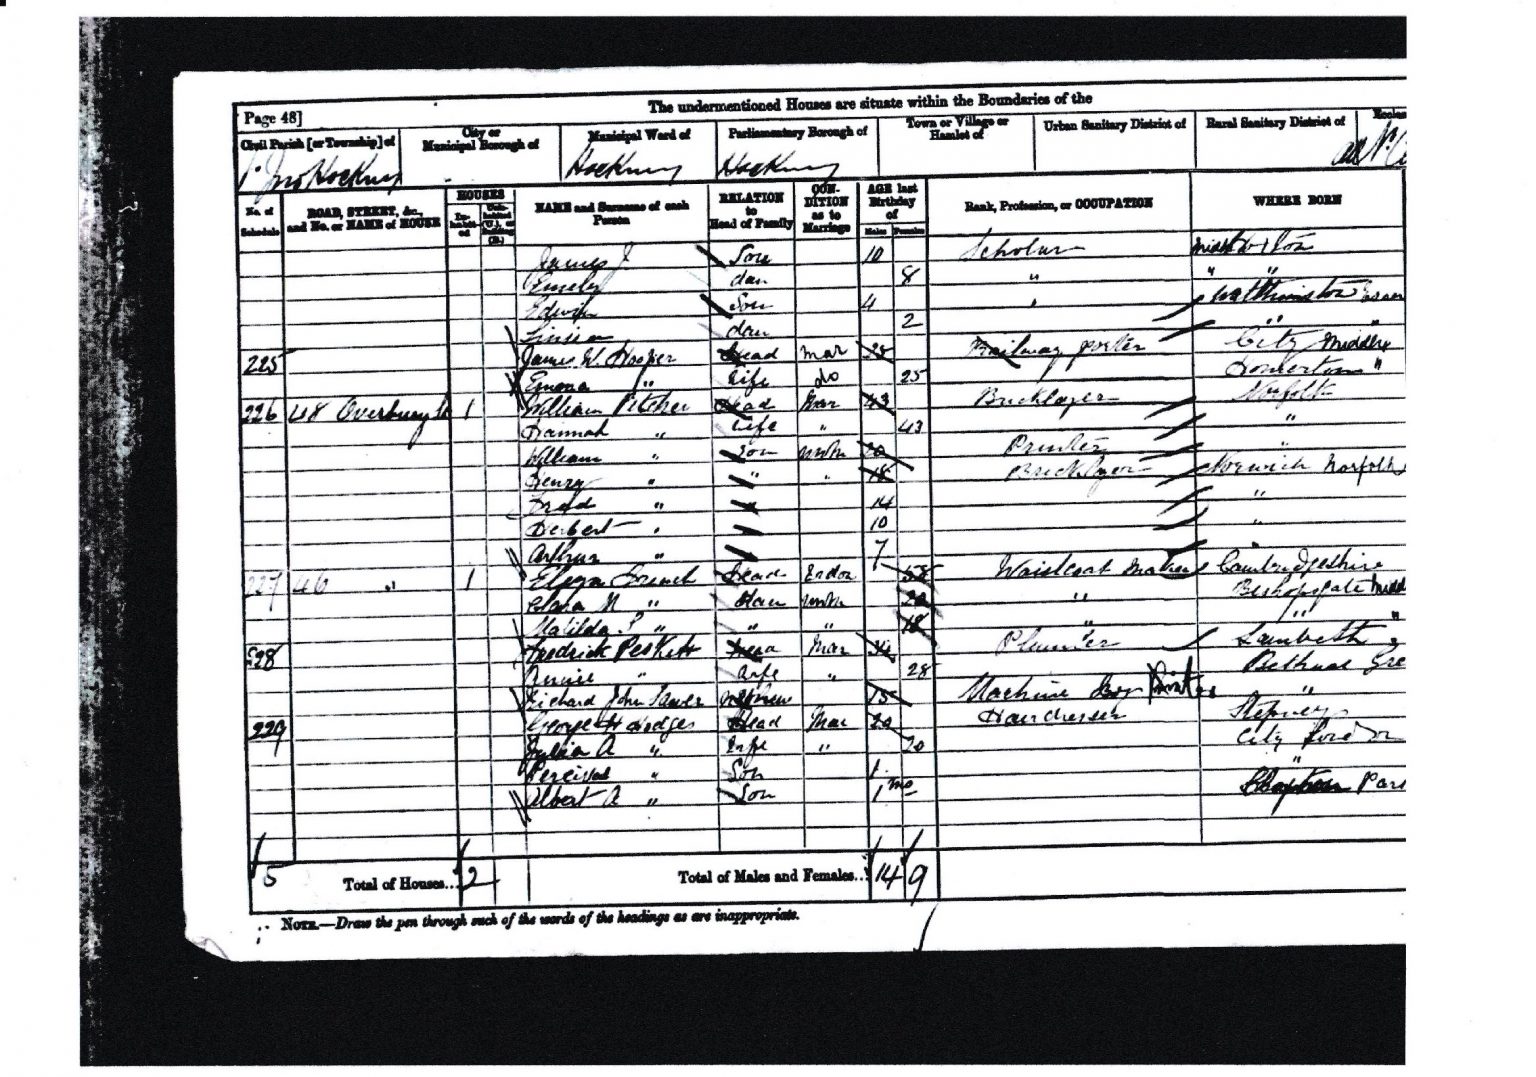 The undermentioned Houses are situate within the Boundaries of the
Page 48]
Civil Parish [or Township] of
City or Municipal Borough of
Municipal Ward of
Parliamentary Borough of
Town or Village or Hamlet of
Urban Sanitary District of
Rural Sanitary District of
Hackney Hackney Hackney
No. of Schedule
ROAD, STREET, &c., and No. or NAME of HOUSE
HOUSES
In-habit-ed
Unin-habited (U.), or Building (B.)
NAME and Surname of each Person
RELATION to Head of Family
CON-DITION as to Marriage
AGE last Birthday of
Males Females
Rank, Profession, or OCCUPATION
WHERE BORN
James J Son 10 Scholar
Emily dau 8 " " "
Edwin Son 4 "
dau 2 " "
225 James W. Hooper Head Mar 28 Railway porter City Middlx
Emma " Wife do 25 Homerton "
226 48 Overbury St 1 William Pitcher Head Mar 43 Bricklayer Norfolk
Hannah " Wife " 43 "
William " Son Unm 20 Printer "
Henry " " " 18 Bricklayer Norwich Norfolk
Fred " 14 "
Herbert " " 10 "
Arthur " " 7 "
227 46 " 1 Eliza French Head 58 Waistcoat Maker Cambridgeshire
Clara M " Dau Unm 20 " Bishopsgate Midd
Matilda " " " 18 " " "
228 Fredrick Peskett Head Mar Plumber Lambeth
" Wife " 28 Bethnal Gre
Richard John Nephew 15 Machine Boy Printers "
229 George H Hodges Head Mar 20 Hairdresser Stepney
Julia A " Wife " 20 City London
Percival " Son 1 "
Albert A " Son 1 mo Clapton Par
5 Total of Houses... 2 Total of Males and Females... 14 9
NOTE.—Draw the pen through such of the words of the headings as are inappropriate.